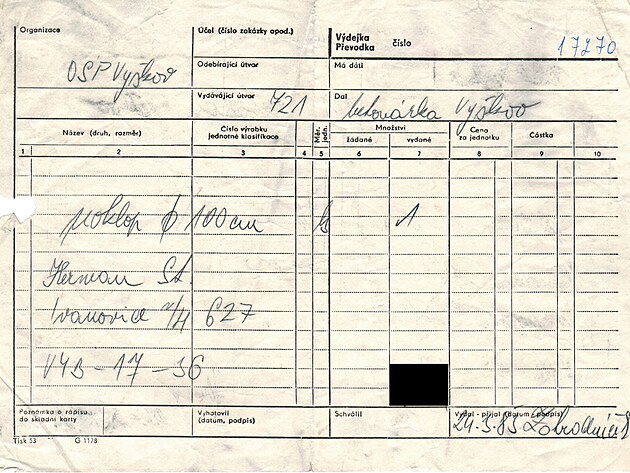 Organizace
Účel (číslo zakázky apod.)
Výdejka
Převodka číslo 17270
OSP Vyškov
Odebírající útvar
Má dáti
Vydávající útvar 721
Dal betonárka Vyškov
Název (druh, rozměr)
Číslo výrobku jednotné klasifikace
Měr. jedn.
Množství
žádané
vydané
Cena za jednotku
Částka
1 2 3 4 5 6 7 8 9 10
poklop ϕ 100 cm ks 1
Herman St.
Ivanovice n/H 627
VYB-17-36
Poznámka o zápisu do skladní karty
Vyhotovil (datum, podpis)
Schválil
Vydal - přijal (datum, podpis)
24.3.85
Tisk 53 G 1178